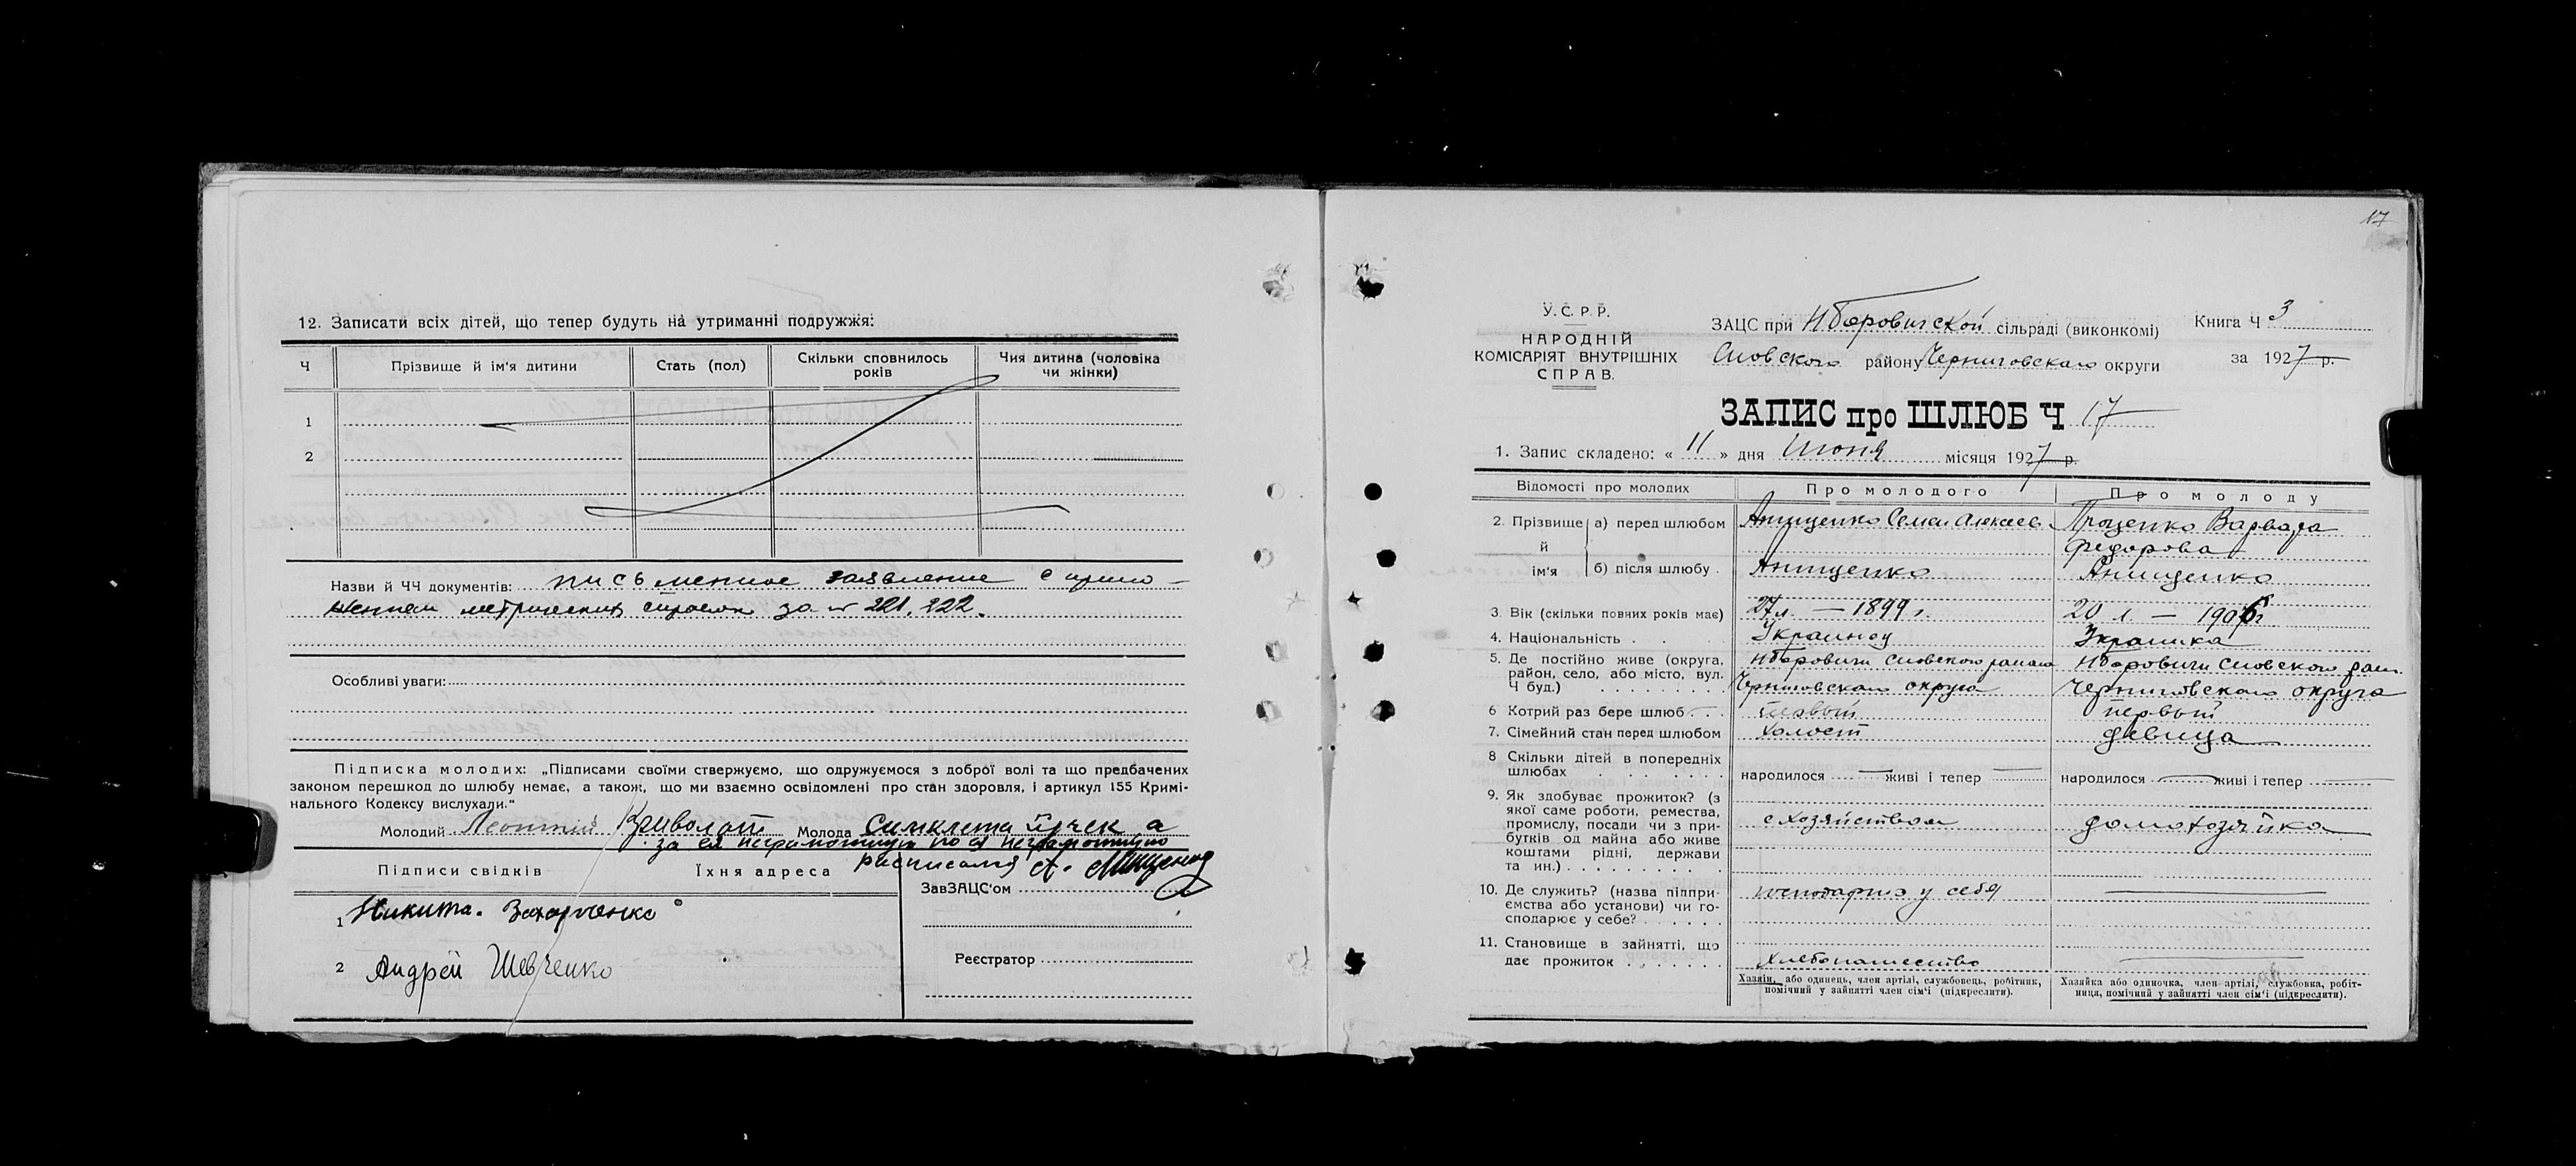 12. Записати всіх дітей, що тепер будуть на утриманні подружжя:
Ч
Прізвище й ім'я дитини
Стать (пол)
Скільки сповнилось років
Чия дитина (чоловіка чи жінки)
1
2
Назви й ЧЧ документів: письменное заявление с прило-
жением метрических справок за № 221, 222.
Особливі уваги:
Підписка молодих: „Підписами своїми ствержуємо, що одружуємося з доброї волі та що предбачених
законом перешкод до шлюбу немає, а також, що ми взаємно освідомлені про стан здоровля, і артикул 155 Кримі-
нального Кодексу вислухали."
Молодий Леонтій Криволап Молода Симклета
за ея неграмотную по ея неграмотную
расписался А.
Підписи свідків
Їхня адреса
ЗавЗАЦС'ом
1 Никита. Захарченко
2 Андрей Шевченко
Реєстратор
17
У.С.Р.Р.
НАРОДНІЙ
КОМІСАРІЯТ ВНУТРІШНІХ
СПРАВ.
ЗАЦС при Нборовичской сільраді (виконкомі)
Книга Ч 3
району Черниговскаго округи
за 1927 р.
ЗАПИС про ШЛЮБ Ч 17
1. Запис складено: « 11 » дня Июня місяця 1927 р.
Відомості про молодих
Про молодого
Про молоду
2. Прізвище й ім'я
а) перед шлюбом
Анищенко Семен Алексеев
Проценко Варвара
Федорова
б) після шлюбу
Анищенко
Анищенко
3. Вік (скільки повних років має)
27 л. — 1899 г.
20 л. — 1906 г
4. Національність
Украинец
Украинка
5. Де постійно живе (округа,
район, село, або місто, вул.
Ч буд.)
Нборовичи
Черниговскаго округа
Нборовичи
Черниговскаго округа
6 Котрий раз бере шлюб
первый
первый
7. Сімейний стан перед шлюбом
Холост
девица
8 Скільки дітей в попередніх
шлюбах
народилося — живі і тепер —
народилося — живі і тепер —
9. Як здобуває прожиток? (з
якої саме роботи, ремества,
промислу, посади чи з при-
бутків од майна або живе
коштами рідні, держави
та ин.)
с хозяйством
домохозяйка
10. Де служить? (назва піппри-
ємства або установи) чи го-
сподарює у себе?
у себя
11. Становище в зайнятті, що
дає прожиток
хлебопашество
Хазяїн, або одинець, член артілі, службовець, робітник,
помічний у зайнятті член сім'ї (підкреслити).
Хазяйка або одиночка, член артілі, службовка, робіт-
ниця, помічний у зайнятті член сім'ї (підкреслити).